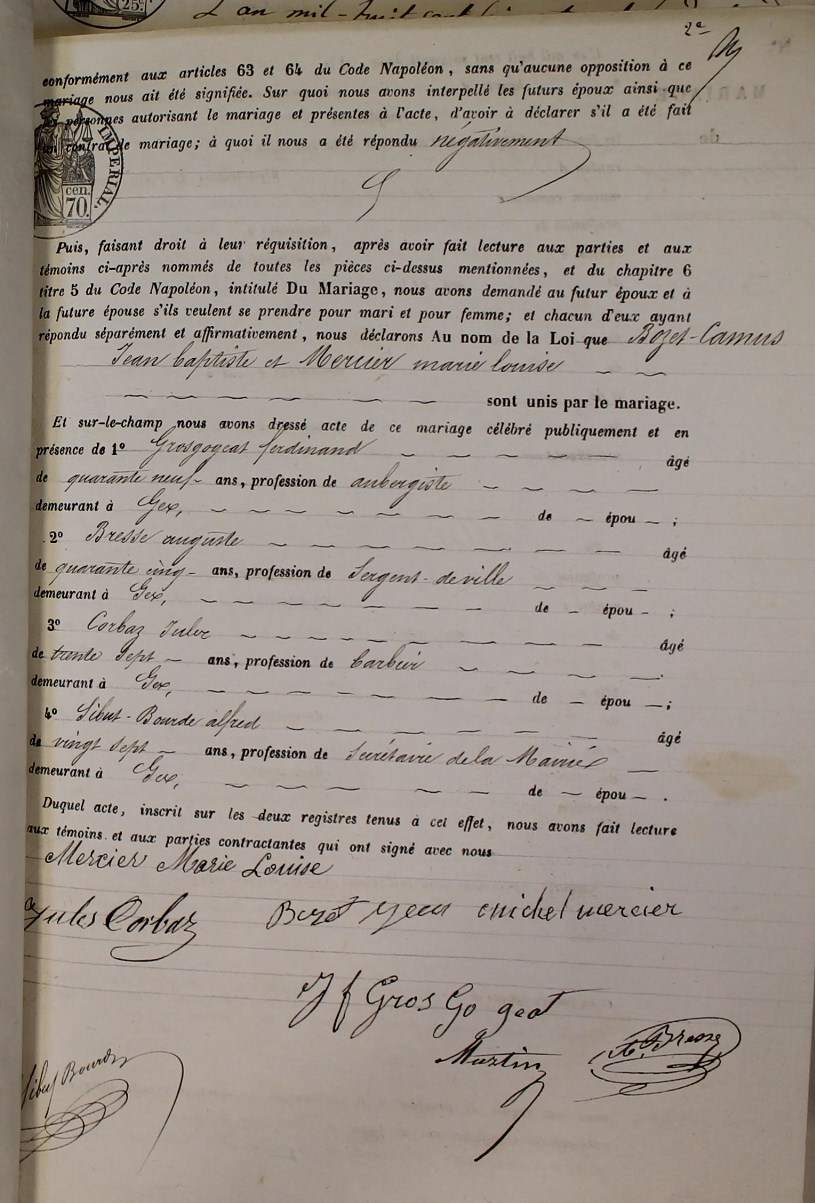 25c.
L'an mil-huit cent
2e
conformément aux articles 63 et 64 du Code Napoléon, sans qu'aucune opposition à ce
mariage nous ait été signifiée. Sur quoi nous avons interpellé les futurs époux ainsi que
les personnes autorisant le mariage et présentes à l'acte, d'avoir à déclarer s'il a été fait
un contrat de mariage; à quoi il nous a été répondu négativement
IMPERIAL.
cen.
70.
Puis, faisant droit à leur réquisition, après avoir fait lecture aux parties et aux
témoins ci-après nommés de toutes les pièces ci-dessus mentionnées, et du chapitre 6
titre 5 du Code Napoléon, intitulé Du Mariage, nous avons demandé au futur époux et à
la future épouse s'ils veulent se prendre pour mari et pour femme; et chacun d'eux ayant
répondu séparément et affirmativement, nous déclarons Au nom de la Loi que Bozet-Camus
Jean baptiste et Mercier marie louise
sont unis par le mariage.
Et sur-le-champ nous avons dressé acte de ce mariage célébré publiquement et en
présence de 1º Grosgogeat ferdinand âgé
de quarante neuf ans, profession de aubergiste
demeurant à Gex, de épou ;
2º Bresse auguste âgé
de quarante cinq ans, profession de Sergent-de ville
demeurant à Gex, de épou ;
3º Corbaz Jules âgé
de trente Sept ans, profession de barbier
demeurant à Gex, de épou ;
4º Sibut-Bourde alfred âgé
de vingt Sept ans, profession de Secrétaire de la Mairie
demeurant à Gex, de épou .
Duquel acte, inscrit sur les deux registres tenus à cet effet, nous avons fait lecture
aux témoins et aux parties contractantes qui ont signé avec nous
Mercier Marie Louise
Jules Corbaz Bozet jean michel mercier
J f Gros Go geat
Martin A. Bresse
Sibut Bourde